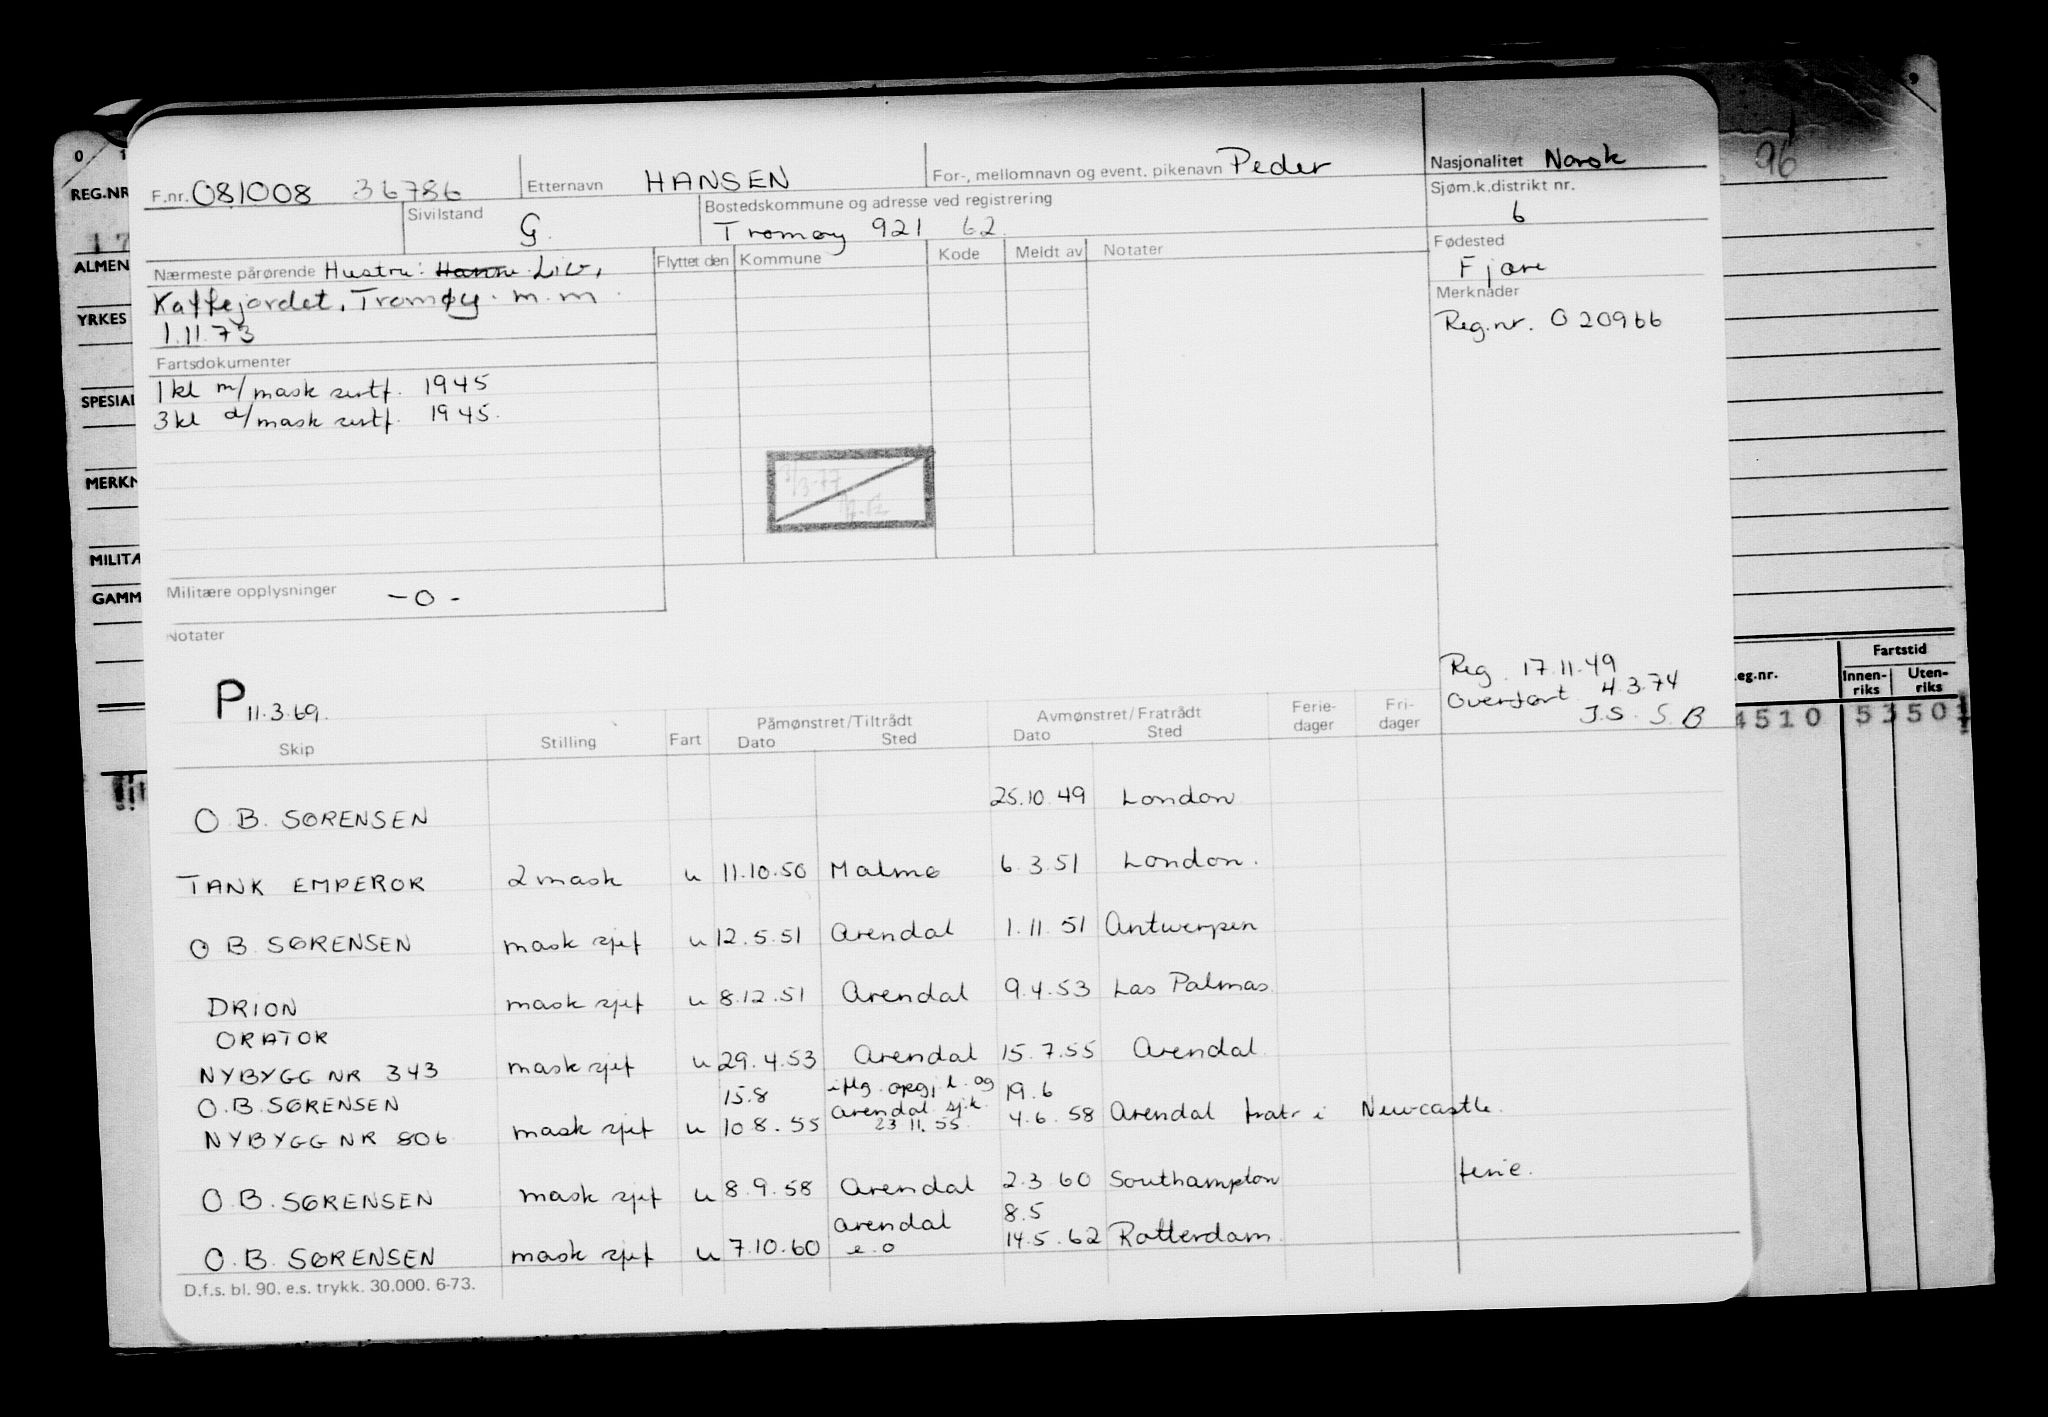 F.nr. 081008 36786 Etternavn HANSEN For-, mellomnavn og event. pikenavn Peder Nasjonalitet Norsk
Sivilstand G. Bostedskommune og adresse ved registrering Tromøy 921 62. Sjøm.k.distrikt nr. 6
Nærmeste pårørende Hustru: Hanne Liv,
Kaffejordet, Tromøy. m.m.
1.11.73
Flyttet den Kommune Kode Meldt av Notater
Fødested
Fjære
Merknader
Reg.nr. 020966
Fartsdokumenter
1 kl m/mask sertf. 1945
3 kl d/mask sertf. 1945.
3/3-77
Militære opplysninger -0-
Notater
P 11.3.69.
Reg. 17.11.49
Overført 4.3.74
J.S. S.B
Skip Stilling Fart Påmønstret/Tiltrådt Dato Sted Avmønstret/Fratrådt Dato Sted Ferie-dager Fri-dager
O.B. SØRENSEN 25.10.49 London
TANK EMPEROR 2 mask u 11.10.50 Malmø 6.3.51 London.
O B SØRENSEN mask sjef u 12.5.51 Arendal 1.11.51 Antwerpen
DRION mask sjef u 8.12.51 Arendal 9.4.53 Las Palmas.
ORATOR
NYBYGG NR 343 mask sjef u 29.4.53 Arendal 15.7.55 Arendal.
O.B. SØRENSEN 15.8 iflg. oppg. t. og 19.6
NYBYGG NR 806 mask sjef u 10.8.55 Arendal sj.k. 23.11.55. 4.6.58 Arendal fratr i Newcastle.
O.B. SØRENSEN mask sjef u 8.9.58 Arendal 2.3.60 Southampton ferie.
Arendal 8.5
O.B. SØRENSEN mask sjef u 7.10.60 e.o 14.5.62 Rotterdam.
D.f.s. bl. 90. e.s. trykk. 30.000. 6-73.
0 1
REG.NR
17
ALMEN
YRKES
SPESIAL
MERKN
MILITÆ
GAMM
9
96
Fartstid
eg.nr. Innen-riks Uten-riks
4510 53501